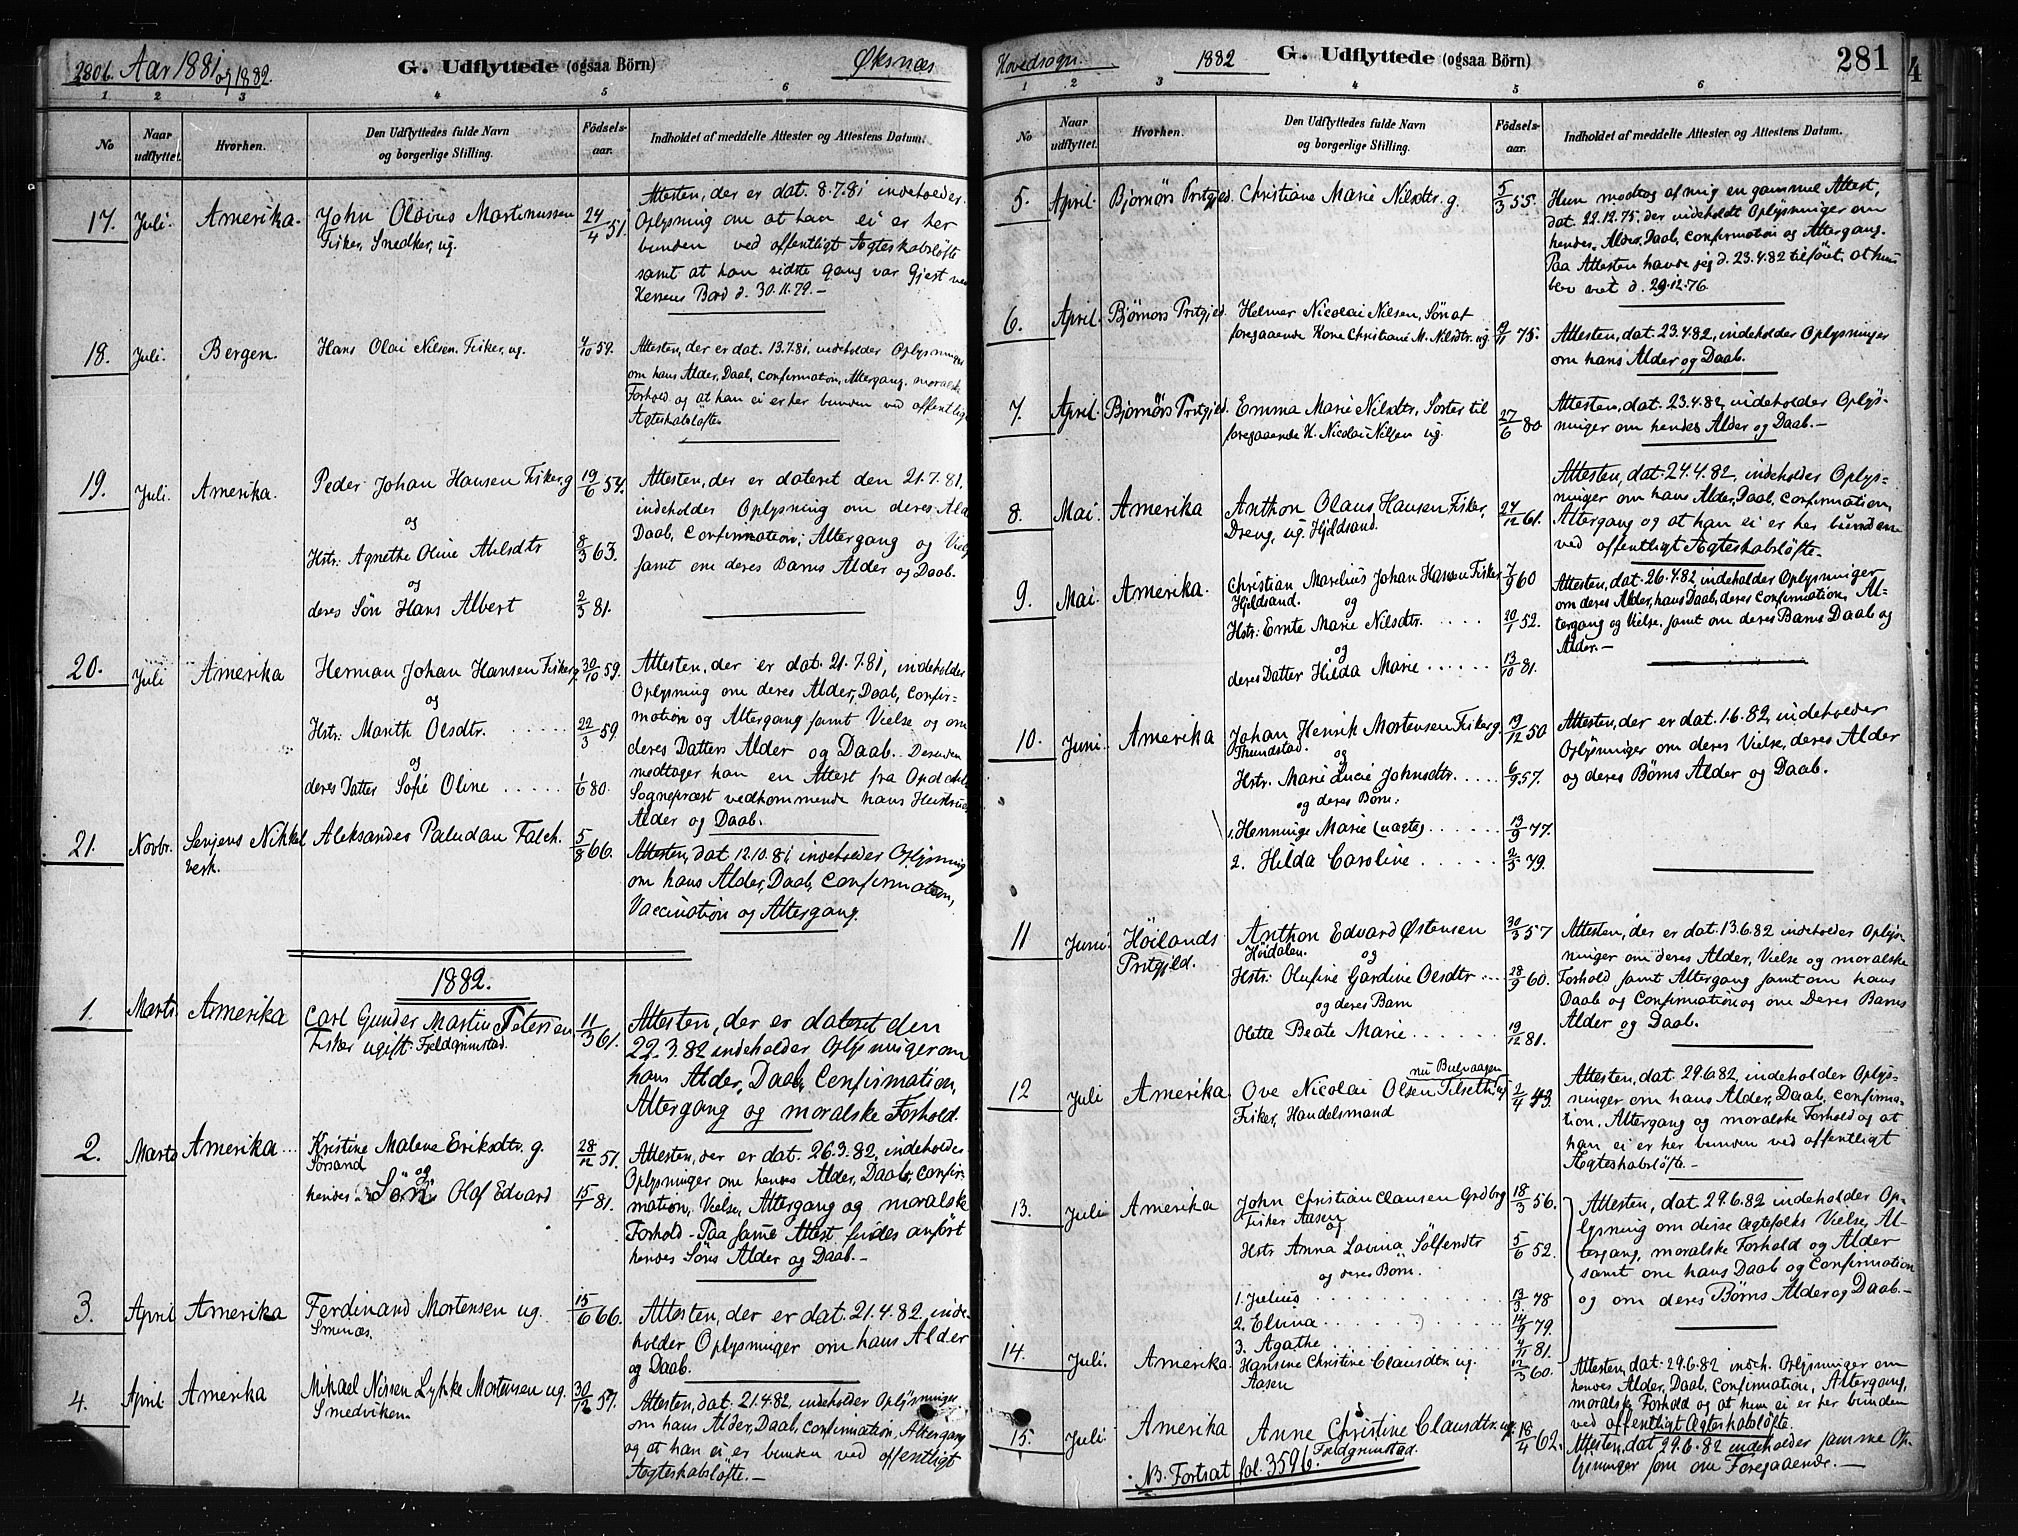 280b. Aar 1881 og 1882.
G. Udflyttede (ogsaa Börn)
Øksnæs
1 2 3 4 5 6
No
Naar udflyttet.
Hvorhen.
Den Udflyttedes fulde Navn
og borgerlige Stilling.
Födsels-
aar.
Indholdet af meddelte Attester og Attestens Datum.
17. Juli. Amerika. John Olavius Martinussen 24/4 51.
Fisker, Snedker, ug.
Attesten, der er dat. 8.7.81 indeholder
Oplysning om at han ei er her
bunden ved offentligt Ægteskabsløfte
samt at han sidste gang var Gjest ved
Herrens Bord d. 30.11.79.—
18. Juli. Bergen. Hans Olai Nilsen. Fisker, ug. 4/10 59.
Attesten, der er dat. 13.7.81, indeholder Oplysninger
om hans Alder, Daab, Confirmation, Altergang, moralske
Forhold og at han ei er her bunden ved offentligt
Ægteskabsløfte.
19. Juli. Amerika. Peder Johan Hansen Fisker, g 19/6 54.
og
Hstr: Agnethe Oline Abelsdtr 8/3 63.
og
deres Søn Hans Albert 2/3 81.
Attesten, der er dateret den 21.7.81,
indeholder Oplysning om deres Alder
Daab, Confirmation, Altergang og Vielse
samt om deres Barns Alder og Daab.
20. Juli Amerika Herman Johan Hansen Fisker g. 30/10 59.
og
Hstr: Marith Olsdtr. 22/3 59
og
deres Datter Sofie Oline 1/6 80.
Attesten, der er dat. 21.7.81, indeholder
Oplysning om deres Alder, Daab, Confir-
mation og Altergang samt Vielse og om
deres Datters Alder og Daab. Desuden
medtager han en Attest fra
Sognepræst vedkommende hans Hustrues
Alder og Daab.
21. Novbr. Senjens Nikkel Aleksander Paludan Falch. 5/8 66.
verk.
Attesten, dat. 12.10.81 indeholder Oplysning
om hans Alder, Daab, Confirmation,
Vaccination og Altergang.
1882.
1. Marts Amerika Carl Gunder Martin Petersen 11/3 61.
Fisker ugift. Fjeldgrunstad.
Attesten, der er dateret den
22.3.82 indeholder Oplysninger om
hans Alder, Daab, Confirmation,
Altergang og moralske Forhold.
2. Marts Amerika Kristine Malene Eriksdtr. g. 28/12 51.
Sørsand
og
hendes Søn Olaf Edvard 15/1 81.
Attesten, der er dat. 26.3.82, indeholder
Oplysninger om hendes Alder, Daab, Confir-
mation, Vielse, Altergang og moralske
Forhold – Paa samme Attest findes anført
hendes Søns Alder og Daab.—
3. April Amerika Ferdinand Mortensen ug. 15/6 66.
Smines.
Attesten, der er dat. 21.4.82, inde-
holder Oplysninger om hans Alder
og Daab.
4. April Amerika Mikael Nissen Lykke Mortensen ug. 30/12 57.
Smedviken.
Attesten, dat. 21.4.82, indeholder Oplysninger
om hans Alder, Daab, Confirmation, Altergang
og at han ei er bunden ved offentligt
Ægteskabsløfte.—
Hovedsogn.
1882
G. Udflyttede (ogsaa Börn)
281
4
1 2 3 4 5 6
No
Naar udflyttet.
Hvorhen.
Den Udflyttedes fulde Navn
og borgerlige Stilling.
Födsels-
aar.
Indholdet af meddelte Attester og Attestens Datum.
5. April. Bjørnørs Prstgjed. Christiane Marie Nilsdtr. g. 5/3 55.
Hun modtog af mig en gammel Attest,
dat. 22.12.75, der indeholdt Oplysninger om
hendes Alder, Daab, Confirmation og Altergang.
Paa Attesten havde jeg d. 23.4.82 tilføiet, at hun
blev viet d. 29.12.76.
6. April. Bjørnørs Prstgjed. Helmer Nicolai Nilsen, Søn af 2/11 75.
foregaaende Kone Christiane M. Nilsdtr. ug.
Attesten, dat. 23.4.82, indeholder Oplysninger
om hans Alder og Daab.
7. April Bjørnørs Prstgjed. Emma Marie Nilsdtr., Søster til 27/6 80
foregaaende H. Nicolai Nilsen ug.
Attesten, dat. 23.4.82, indeholder Oplys-
ninger om hendes Alder og Daab.—
8. Mai. Amerika Anthon Olaus Hansen Fisker, 24/12 61.
Dreng, ug. Hjldsand.
Attesten, dat. 24.4.82, indeholder Oplys-
ninger om hans Alder, Daab, Confirmation,
Altergang og at han ei er her bunden
ved offentligt Ægteskabsløfte.—
9. Mai. Amerika. Christian Marelius Johan Hansen Fisker 7/9 60
Hjldsand. og
Hstr: Ernte Marie Nilsdtr. 20/1 52.
og
deres Datter Hilda Marie 13/10 81.
Attesten, dat. 26.4.82, indeholder Oplysninger
om deres Alder, hans Daab, deres Confirmation, Al-
tergang og Vielse, samt om deres Barns Daab og
Alder.—
10. Juni. Amerika Johan Henrik Mortensen Fisker g. 19/12 50
Thundstad. og
Hstr. Marie Lucie Johnsdtr. 6/9 57.
og deres Børn:
1. Henninge Marie (uægte) 13/9 77.
2. Hilda Caroline 2/5 79.
Attesten, der er dat. 1.6.82, indeholder
Oplysninger om deres Vielse, deres Alder
og deres Børns Alder og Daab.
11 Juni Höilands Anthon Edvard Østensen 30/3 57
Prstgjld. Høidalen. og
Hstr: Olufine Gardine Olsdtr 28/9 60.
og deres Barn
Olette Beate Marie 19/12 81.
Attesten, der er dat. 13.6.82 indeholder Oplys-
ninger om deres Alder, Vielse og moralske
Forhold samt Altergang samt om hans
Daab og Confirmation og om Deres Barns
Alder og Daab.
nu Bulvaagen
12 Juli Amerika. Ove Nicolai Olsen Tilseth, ug 2/4 43.
Fisker, Handelsmand
Attesten, dat. 29.6.82, indeholder Oplys-
ninger om hans Alder, Daab, Confirma-
tion, Altergang og moralske Forhold og at
han ei er her bunden ved offentligt
Ægteskabsløfte.—
13. Juli Amerika John Christian Clausen Grdbrg 18/3 56.
Fisker Aasen
og
Hstr Anna Lovina Sølfensdtr 5/6 52.
og deres Børn.
1. Julius 13/3 78
2. Elvina 14/9 79.
3. Agathe 4/11 81.
Attesten, dat. 29.6.82 indeholder Op-
lysning om disse Ægtefolks Vielse, Al-
tergang, moralske Forhold og Alder
samt om hans Daab og Confirmation
og om deres Børns Alder og Daab.—
14. Juli. Amerika. Hansine Christine Clausdtr. ug. 12/3 60.
Aasen
Attesten, dat. 29.6.82 indeh. Oplysninger om
hendes Alder, Daab, Confirmation, Altergang,
moralske Forhold og at hun ei er her bunden
ved offentligt Ægteskabsløfte.
15. Juli. Amerika Anne Christine Clausdtr. ug. 18/4 62.
Fjeldgrunstad.
Attesten, dat. 29.6.82 indeholder samme Op-
lysninger som om Foregaaende.—
NB. Fortsat fol. 359b.